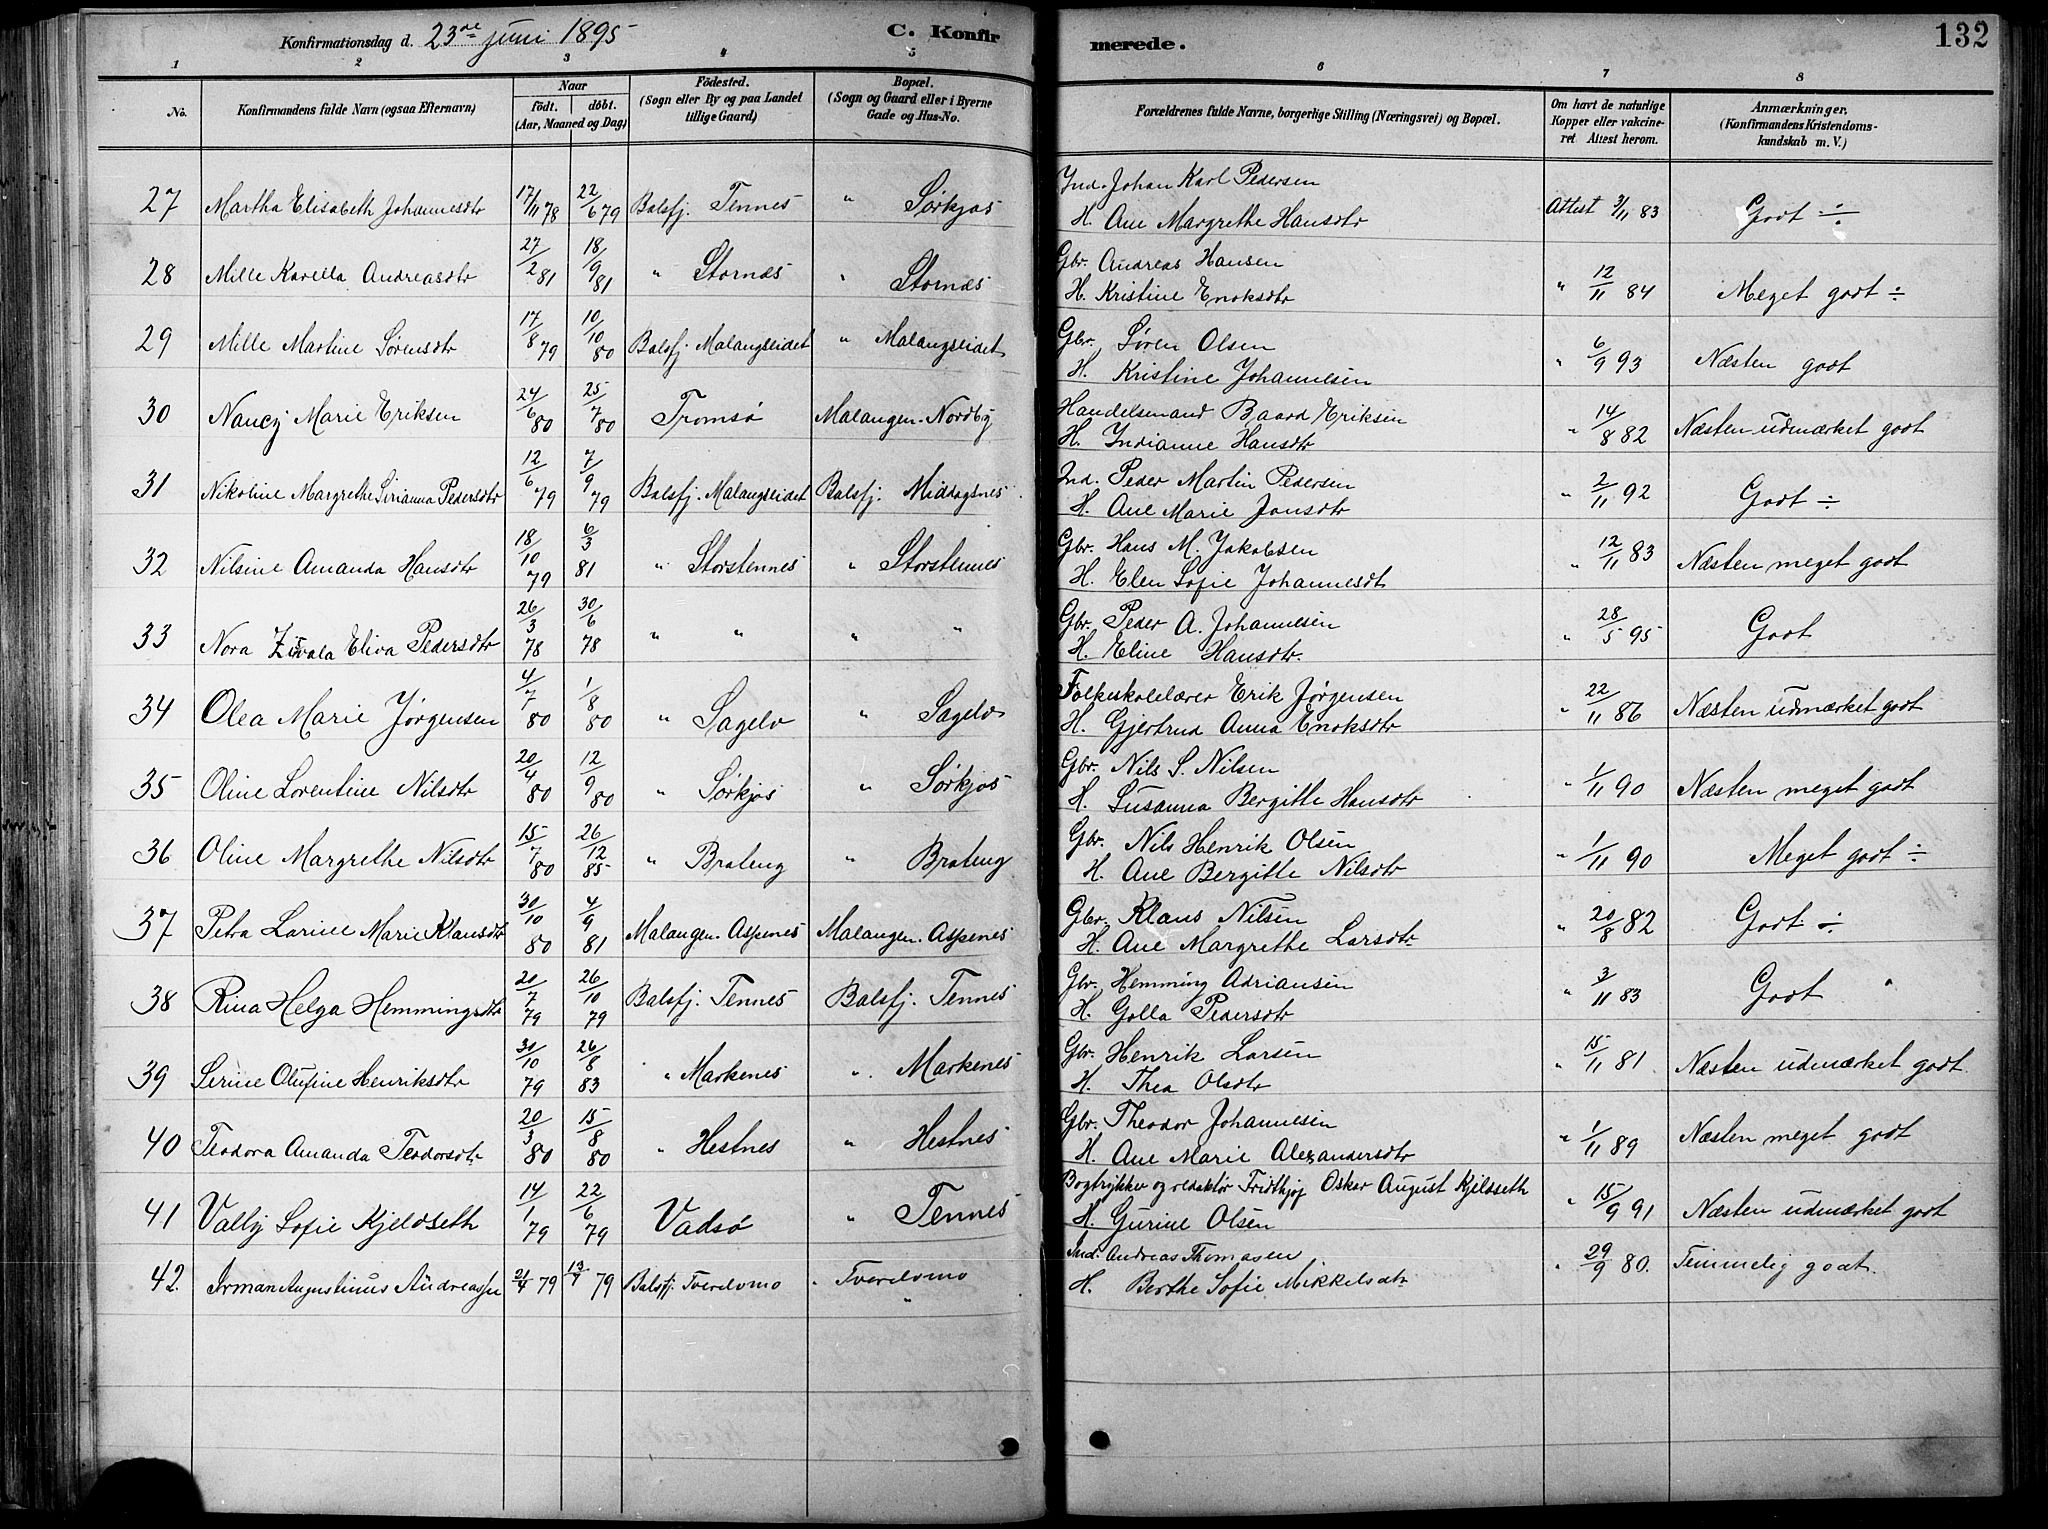 Konfirmationsdag d. 23de juni 1895
C. Konfirmerede.
132
1 2 3 4 5 6 7 8
No. Konfirmandens fulde Navn (ogsaa Efternavn) Naar födt. döbt. (Aar, Maaned og Dag) Födested. (Sogn eller By og paa Landet tillige Gaard) Bopæl. (Sogn og Gaard eller i Byerne Gade og Hus-No. Forældrenes fulde Navne, borgerlige Stilling (Næringsvei) og Bopæl. Om havt de naturlige Kopper eller vakcineret Attest herom. Anmærkninger. (Konfirmandens Kristendomskundskab m. V.)
27 Martha Elisabeth Johannesdtr 17/11 78 22/6 79 Balsfj. Tennes " Sørkjos Ind. Johan Karl Pedersen
H. Ane Margrethe Hansdtr Attest 3/11 83 Godt ÷
28 Mille Karella Andreasdtr 27/2 81 18/9 81 " Stornæs " Stornæs Gbr. Andreas Hansen
H. Kristine Enoksdtr " 12/11 84 Meget godt ÷
29 Mille Martine Sørensdtr 17/8 79 10/10 80 Balsfj. Malangseidet " Malangseidet Gbr. Søren Olsen
H. Kristine Johannesen " 6/9 93 Næsten godt
30 Nancy Marie Eriksen 24/6 80 25/7 80 Tromsø Malangen. Nordby Handelsmand Baard Eriksen
H. Indianne Hansdtr " 14/8 82 Næsten udmærket godt
31 Nikoline Margrethe Sirianna Pedersdtr 12/6 79 7/9 79 Balsfj. Malangseidet Balsfj. Middagsnes Ind. Peder Martin Pedersen
H. Ane Marie Jonsdtr " 2/11 92 Godt ÷
32 Nilsine Amanda Hansdtr 18/10 79 6/3 81 " Storstennes " Storstennes Gbr. Hans M. Jakobsen
H. Elen Sofie Johannesdt " 12/11 83 Næsten meget godt
33 Nora Elira Pedersdtr 26/3 78 30/6 78 " " " " Gbr. Peder A. Johannesen
H. Eline Hansdtr. " 28/5 95 Godt
34 Olea Marie Jørgensen 4/7 80 1/8 80 " Sagelv " Sagelv Folkeskolelærer Erik Jørgensen
H. Gjertrud Anna Enoksdtr " 22/11 86 Næsten udmærket godt
35 Oline Lorentine Nilsdtr 20/4 80 12/9 80 " Sørkjos " Sørkjos Gbr. Nils S. Nilsen
H. Susanna Bergitte Hansdtr " 1/11 90 Næsten meget godt
36 Oline Margrethe Nilsdtr 15/7 80 26/12 85 " Brateng " Brateng Gbr. Nils Henrik Olsen
H. Ane Bergitte Nilsdtr " 1/11 90 Meget godt ÷
37 Petra Larine Marie Klausdtr 30/10 80 4/9 81 Malangen. Aspenes Malangen. Aspenes Gbr. Klaus Nilsen
H. Ane Margrethe Larsdtr " 20/8 82 Godt ÷
38 Rina Helga Hemmingsdtr 20/7 79 26/10 79 Balsfj. Tennes Balsfj. Tennes Gbr. Hemming Adriansen
H. Golla Pedersdtr " 3/11 83 Godt
39 Serine Olufine Henriksdtr 30/10 79 26/8 83 " Markenes " Markenes Gbr. Henrik Larsen
H. Thea Olsdtr " 15/11 81 Næsten udmærket godt.
40 Teodora Amanda Teodorsdtr 20/3 80 15/8 80 " Hestnes " Hestnes Gbr. Theodor Johannesen
H. Ane Marie Alexandersdtr " 1/11 89 Næsten meget godt
41 Vally Sofie Kjeldseth 14/1 79 22/6 79 Vadsø " Tennes Bogtrykker og redaktør Fridthjof Oskar August Kjeldseth
H. Gurine Olsen " 15/9 91 Næsten udmærket godt
42. Irman Augustinus Andreassen 21/4 79 79 Balsfj. Tverelvmo " Tverelvmo Ind. Andreas Thomasen
H. Berthe Sofie Mikkelsdtr " 29/9 80. Temmelig godt.